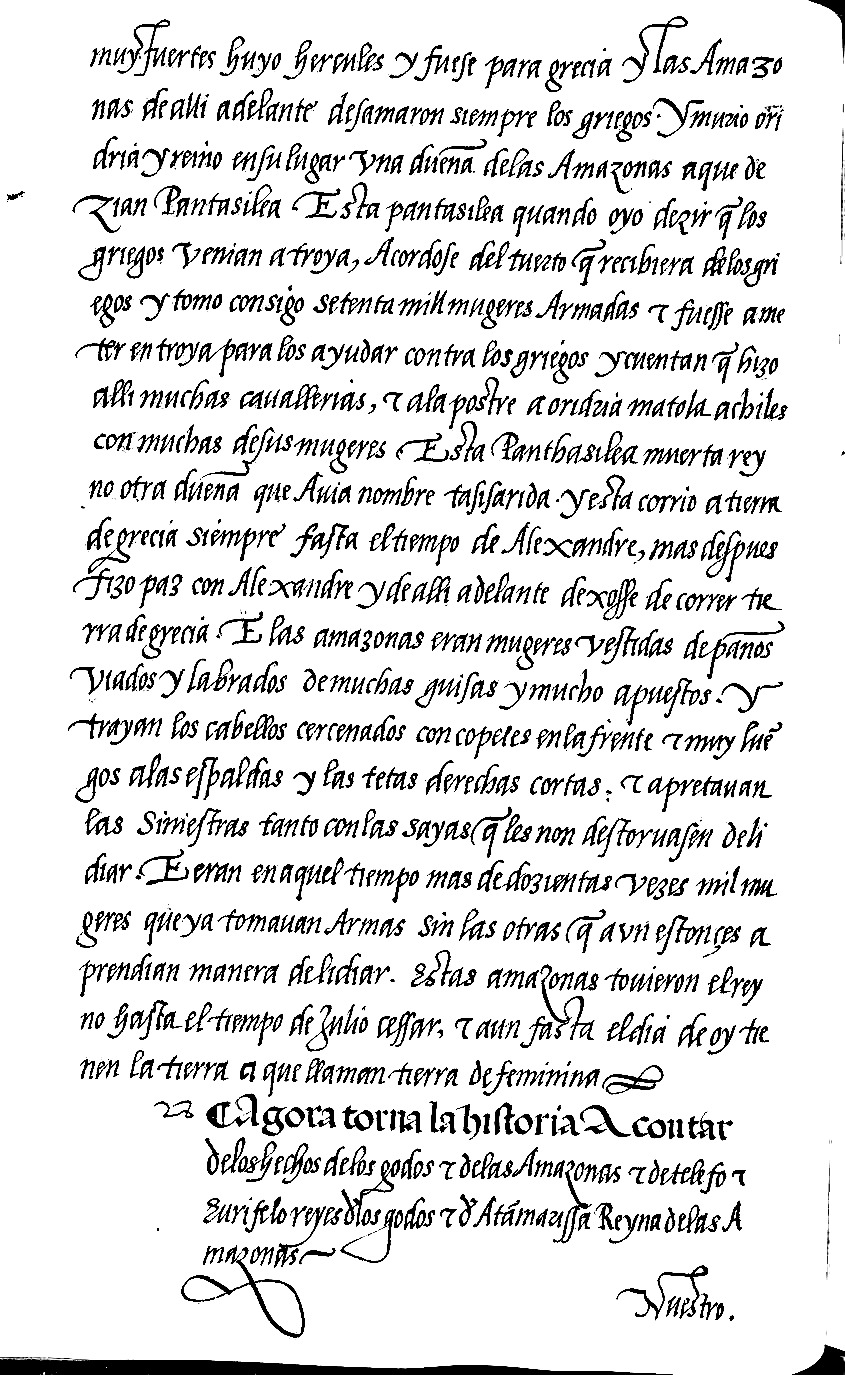 muy fuertes huyo hercules y fuese para grecia y las Amazo
nas de alli adelante desamaron siempre los griegos. Y murio ori
dria y reino en su lugar vna dueña delas Amazonas aque de
zian Pantasilea. Esta pantasilea quando oyo dezir q̃ los
griegos venian a troya, Acordose del tuerto q̃ recibiera delos gri
egos y tomo consigo setenta mill mugeres Armadas τ fuesse a me
ter en troya para los ayudar contra los griegos y cuentan q̃ hizo
alli muchas cauallerias, τ ala postre a oridria matola achiles
con muchas de sus mugeres. Esta Panthasilea muerta rey
no otra dueña que Auia nombre tasisarida. y esta corrio a tierra
de grecia siempre fasta el tiempo de Alexandre, mas despues
fizo paz con Alexandre y de alli adelante dexosse de correr tie
rra de grecia. E las amazonas eran mugeres vestidas de paños
viados y labrados de muchas guisas y mucho apuestos. Y
trayan los cabellos cercenados con copetes en la friente τ muy luẽ
gos alas espaldas y las tetas derechas cortas. τ apretauan
las siniestras tanto con las sayas q̃ les non destoruasen de li
diar. E eran en aquel tiempo mas de dozientas vezes mil mu
geres que ya tomauan Armas sin las otras q̃ avn estonçes a
prendian manera de lidiar. Estas amazonas touieron el rey
no hasta el tiempo de Julio cessar, τ aun fasta el dia de oy tie
nen la tierra a que llaman tierra de feminina
¶ Agora torna la historia A contar
delos hechos delos godos τ delas Amazonas τ de telefo τ
Eurifelo reyes d̃los godos τ d̃ Atãmarissa Reyna delas A
mazonas
Nuestro.